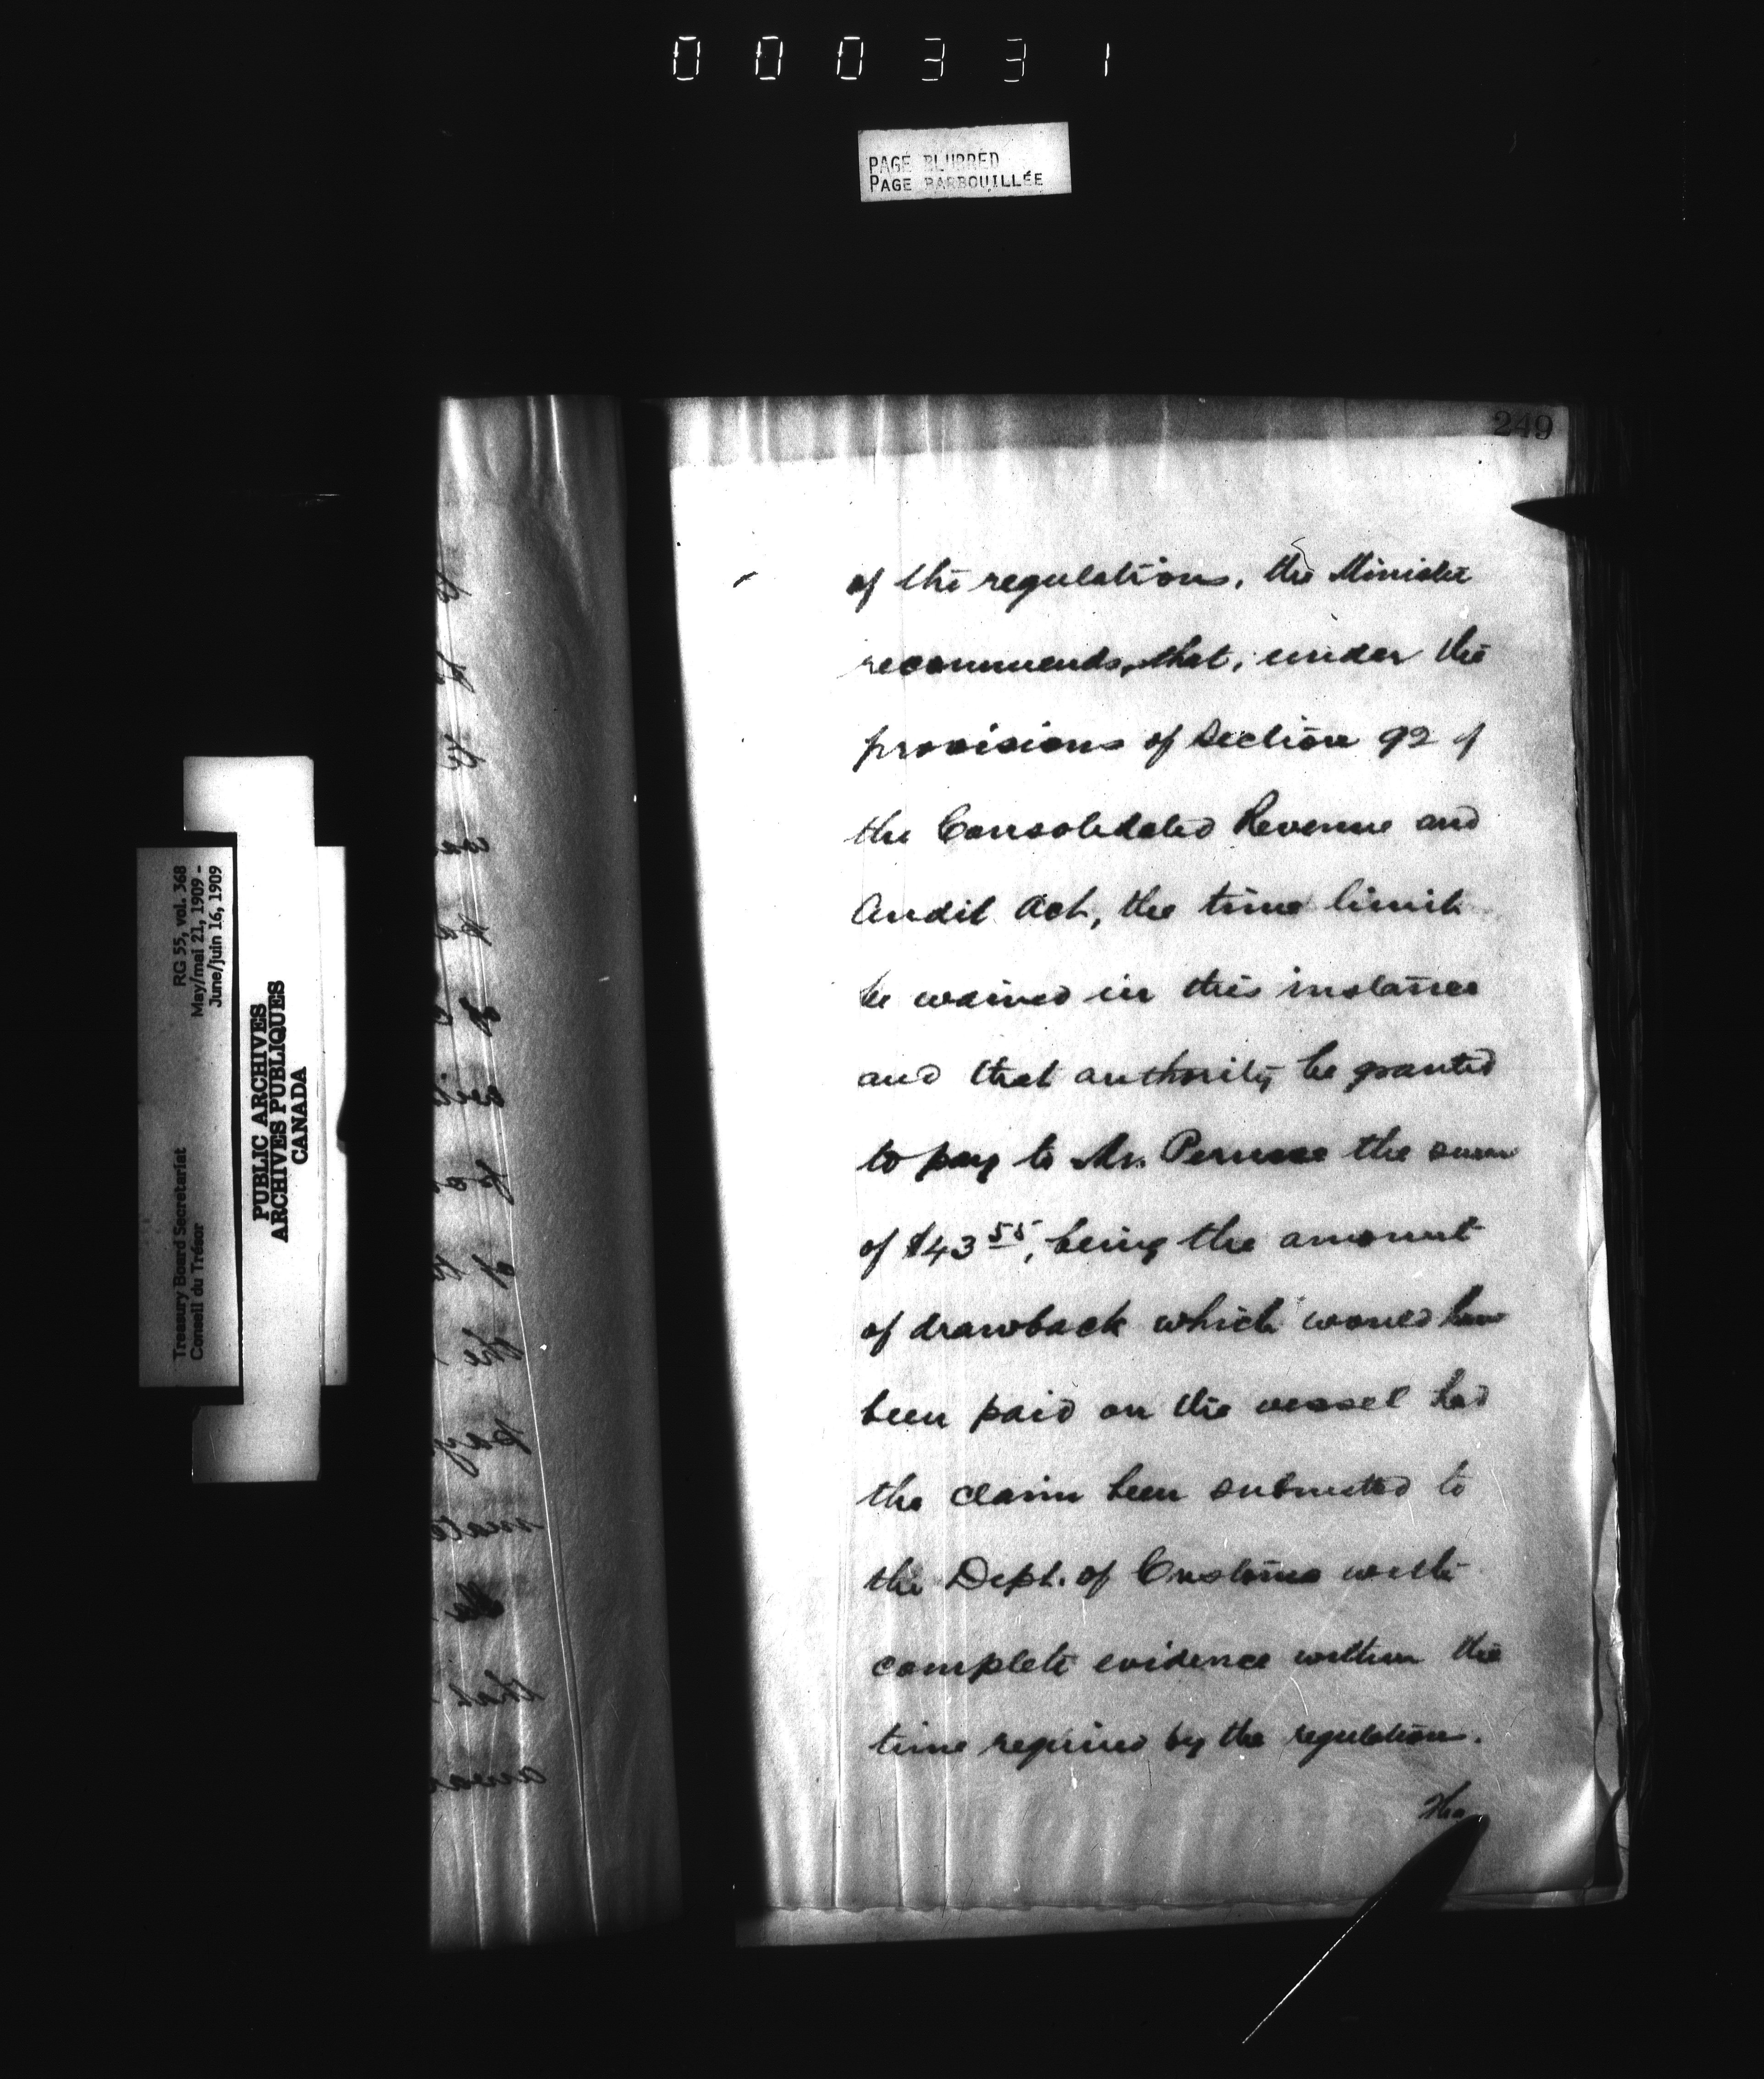 000331
PAGE BLURRED
PAGE BARBOUILLÉE
249
of the regulations, the Minister
recommends, that, under the
provisions of Section 92 of
the Consolidated Revenue and
Audit Act, the time limit
be waived in this instance
and that authority be granted
to pay to Mr. the sum
of $43 55, being the amount
of drawback which would have
been paid on the vessel had
the claim been submitted to
the Dept. of Customs with
complete evidence within the
time required by the regulations.
The
Treasury Board Secretariat
Conseil du Trésor
RG 55, vol. 368
May/mai 21, 1909 -
June/juin 16, 1909
PUBLIC ARCHIVES
ARCHIVES PUBLIQUES
CANADA